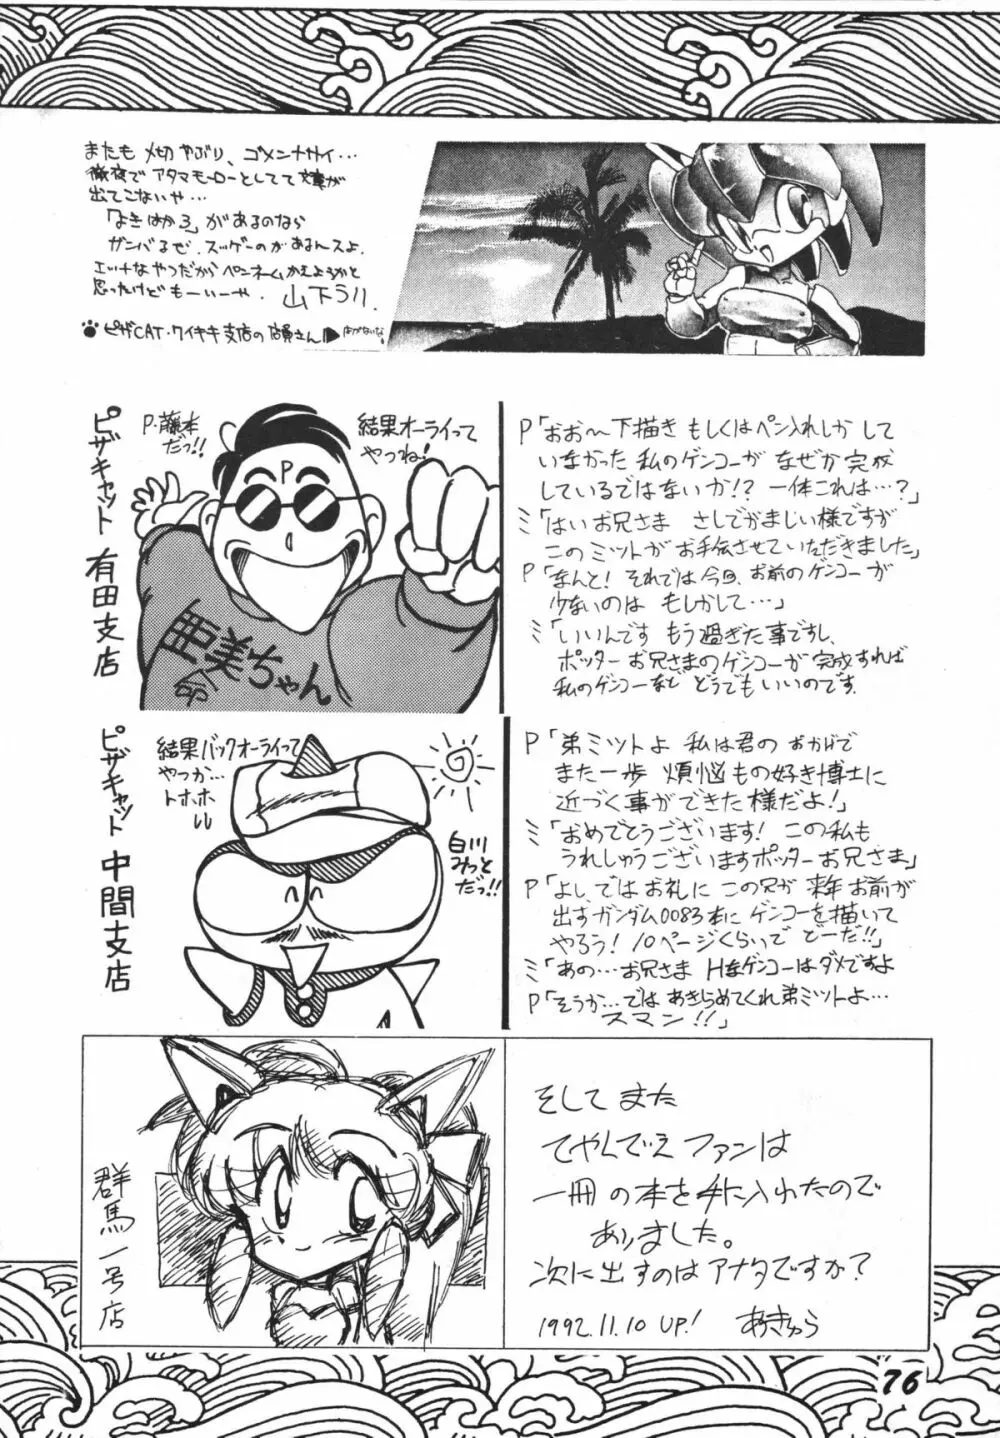 またも〆切やぶり、ゴメンナサイ…
徹夜でアタマモーローとしてて文章が
出てこないや…
「よきはかろ」があるのなら
ガンバるぜ。スッゲーのがあるんスよ。
エッチなやつだからペンネームかえよるかと
思ったけどもーいーや. 山下うり
ピザCAT・ワイキキ支店の店員さん
ピザキャット 有田支店
P・藤本
だっ!!
結果オーライって
やつね!
P
亜美ちゃん
命
P「おお〜下描きもしくはペン入れしかして
いなかった私のゲンコーがなぜか完成
しているではないか!? 一体これは…?」
ミ「はいお兄さま さしでがまじい様ですが
このミットがお手伝させていただきました」
P「なんと! それでは今回、お前のゲンコーが
少ないのは もしかして…」
ミ「いいんです もう過ぎた事ですし、
ポッターお兄さまのゲンコーが完成すれば
私のゲンコーなど どうでもいいのです.
ピザキャット 中間支店
結果バックオーライって
やつか…
トホホ
白川
みっと
だっ!!
P「弟ミットよ 私は君のおかげで
また一歩 煩悩もの好き博士に
近づく事ができた様だよ!」
ミ「おめでとうございます! この私も
うれしゅうございますポッターお兄さま」
P「よしではお礼に この兄が 来年お前が
出すガンダム0083本に ゲンコーを描いて
やろう! 10ページくらいで どーだ!!」
ミ「あの…お兄さま Hなゲンコーはダメですよ
P「そうか…ではあきらめてくれ弟ミットよ…
スマン!!」
群馬一号店
そしてまた
てやんでぃえファンは
一冊の本を手に入れたので
ありました。
次に出すのはアナタですか?
1992.11.10 UP! あきゅら
76